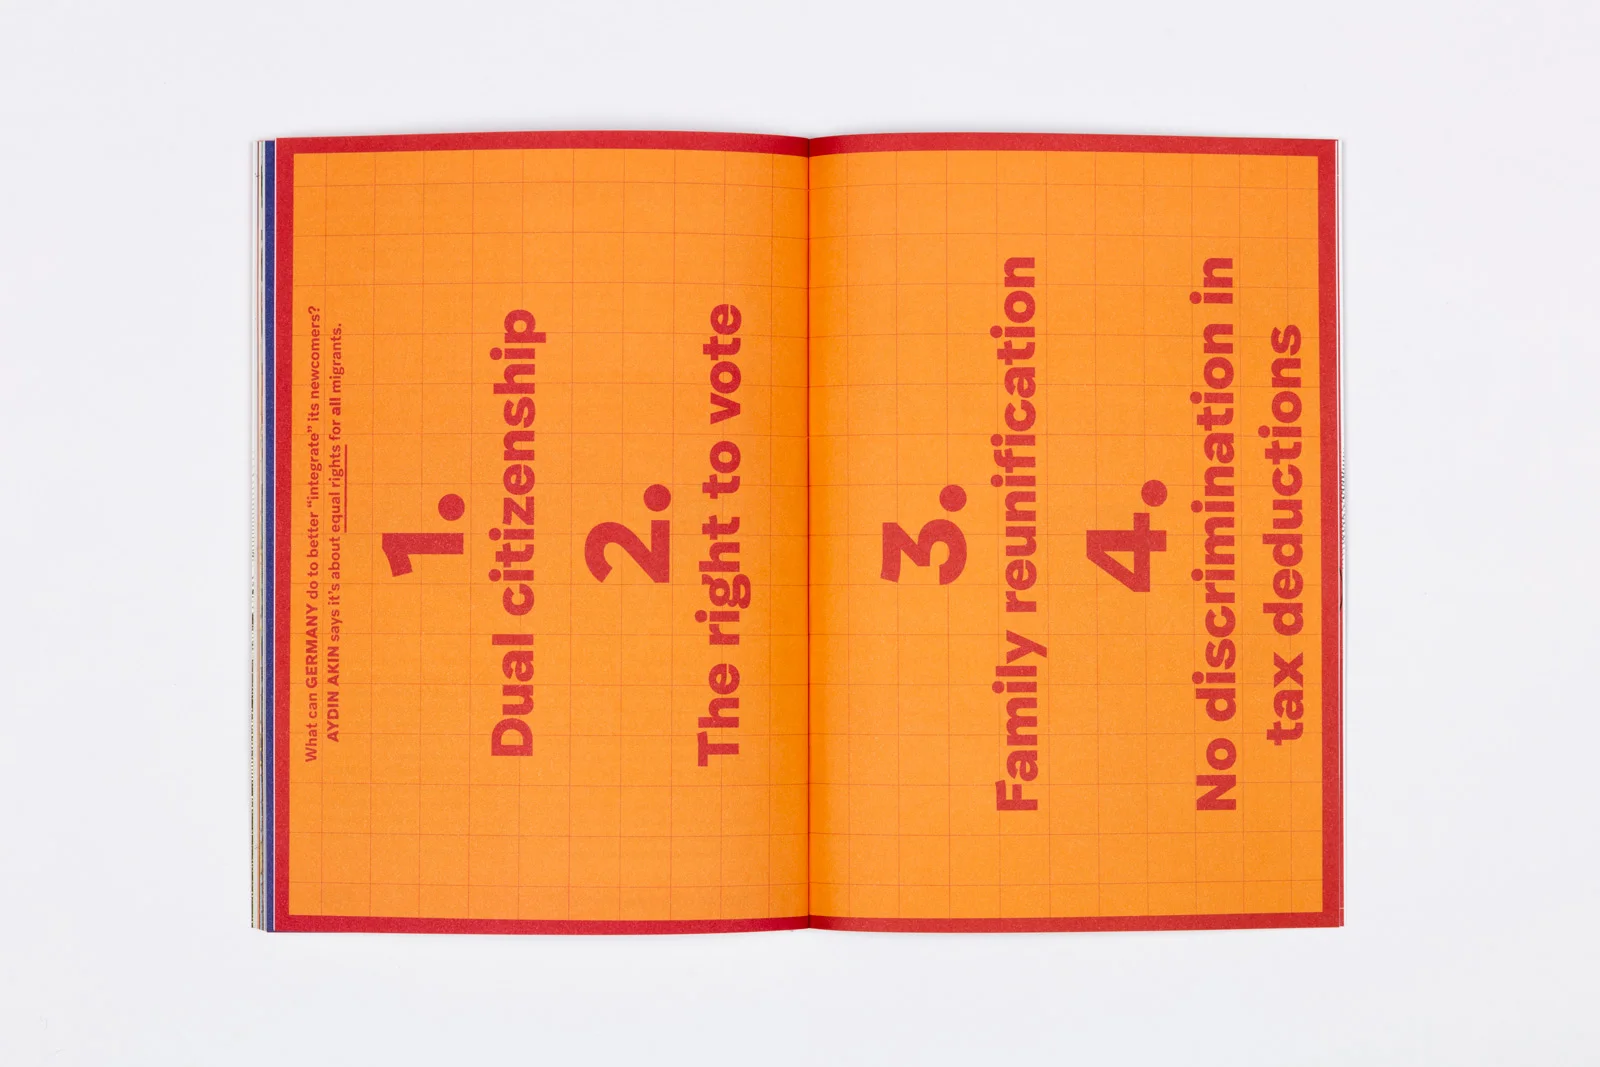 What can GERMANY do to better “integrate” its newcomers?
AYDIN AKIN says it’s about equal rights for all migrants.
1.
Dual citizenship
2.
The right to vote
3.
Family reunification
4.
No discrimination in
tax deductions